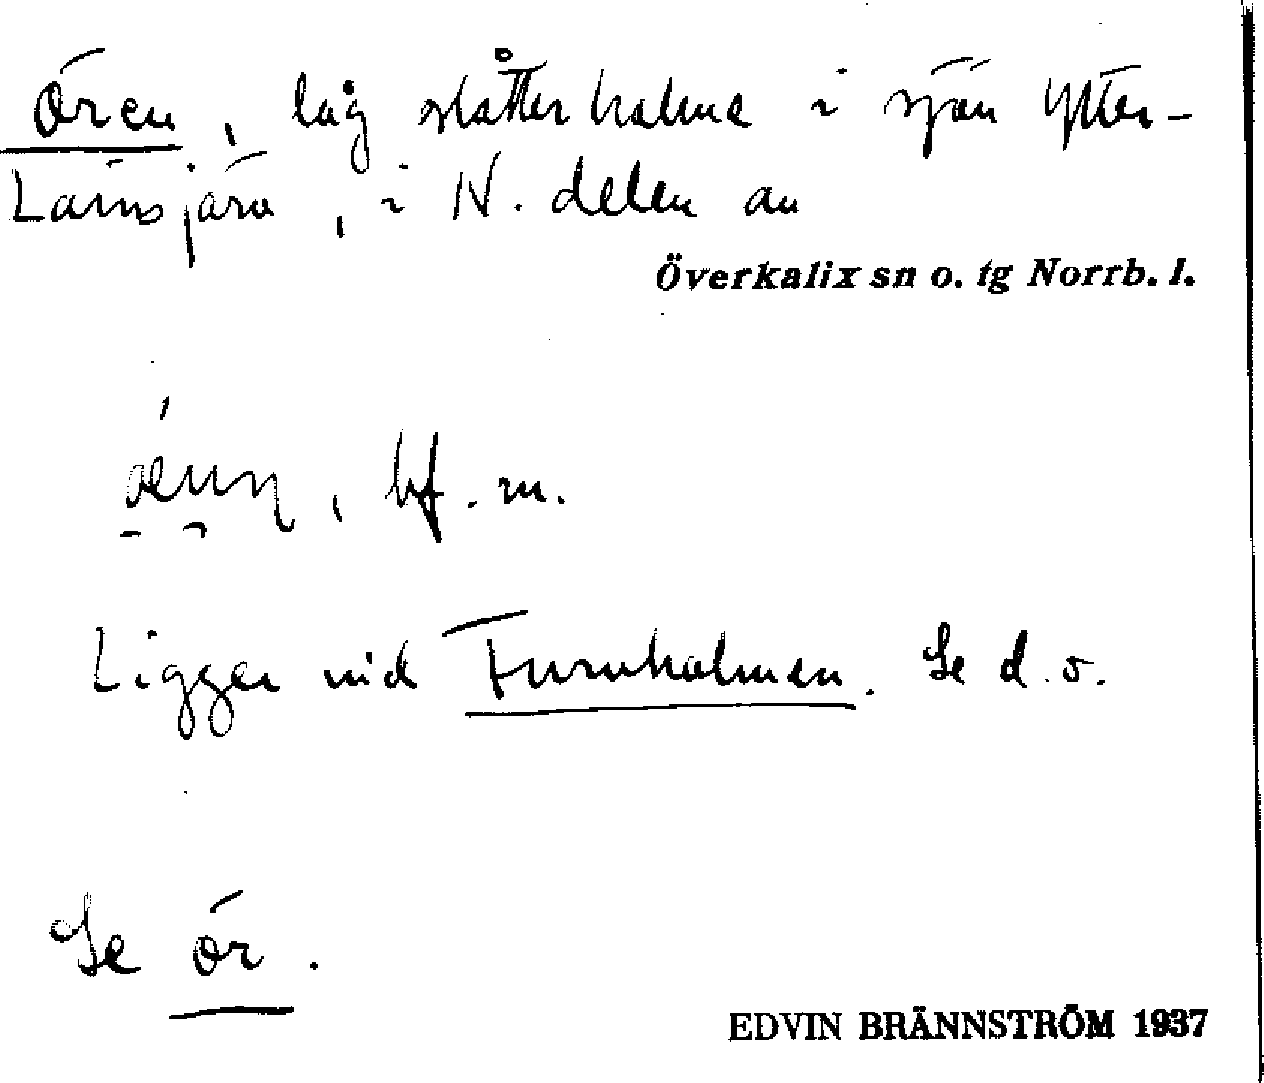 Ören, låg slåtterholme i sjön Ytter-
Lainsjärv, i N. delen av
Överkalix sn o. tg Norrb. l.
, bf. m.
Ligger vid Furuholmen. Se d.o.
Se ör.
EDVIN BRÄNNSTRÖM 1937